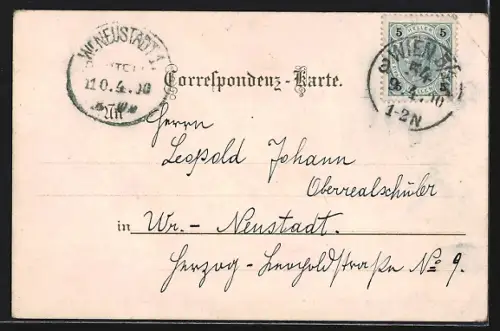 W. NEUSTADT 1.
10.4.00
Correspondenz-Karte.
5 HELLER 5
WIEN
54
9.4.00
1-2N
An
Herrn
Leopold Johann
Oberrealschüler
in Wr.- Neustadt.
Herzog-Leopoldstraße No 9.